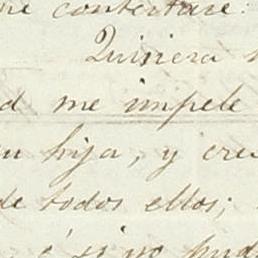 me contestare:
Quisiera
me impele
hija, y cre
de todos ellos;
é si no pud